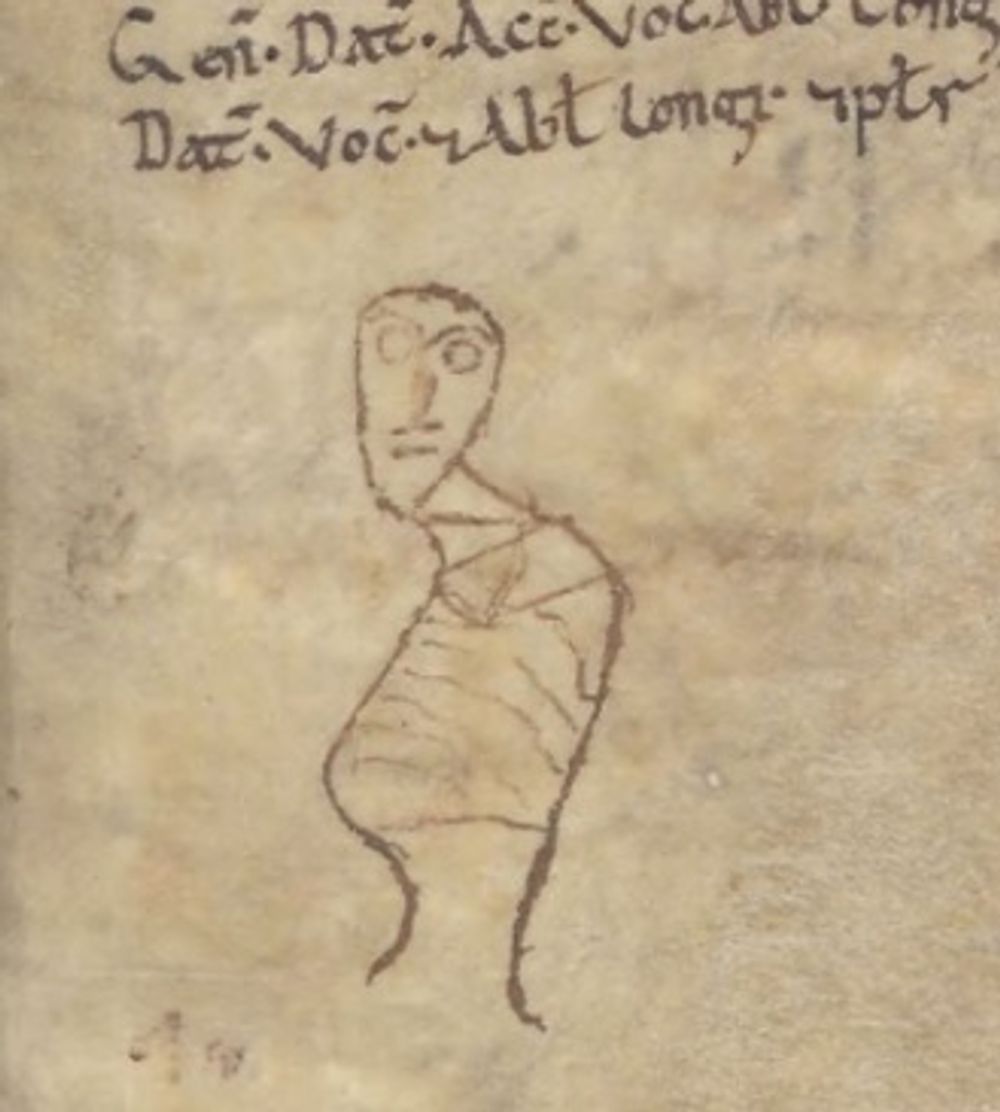 Gen̄. Dat̄. Acc̄. Voc. Abl Long
Dat̄. Voc̄. ⁊ Abł long